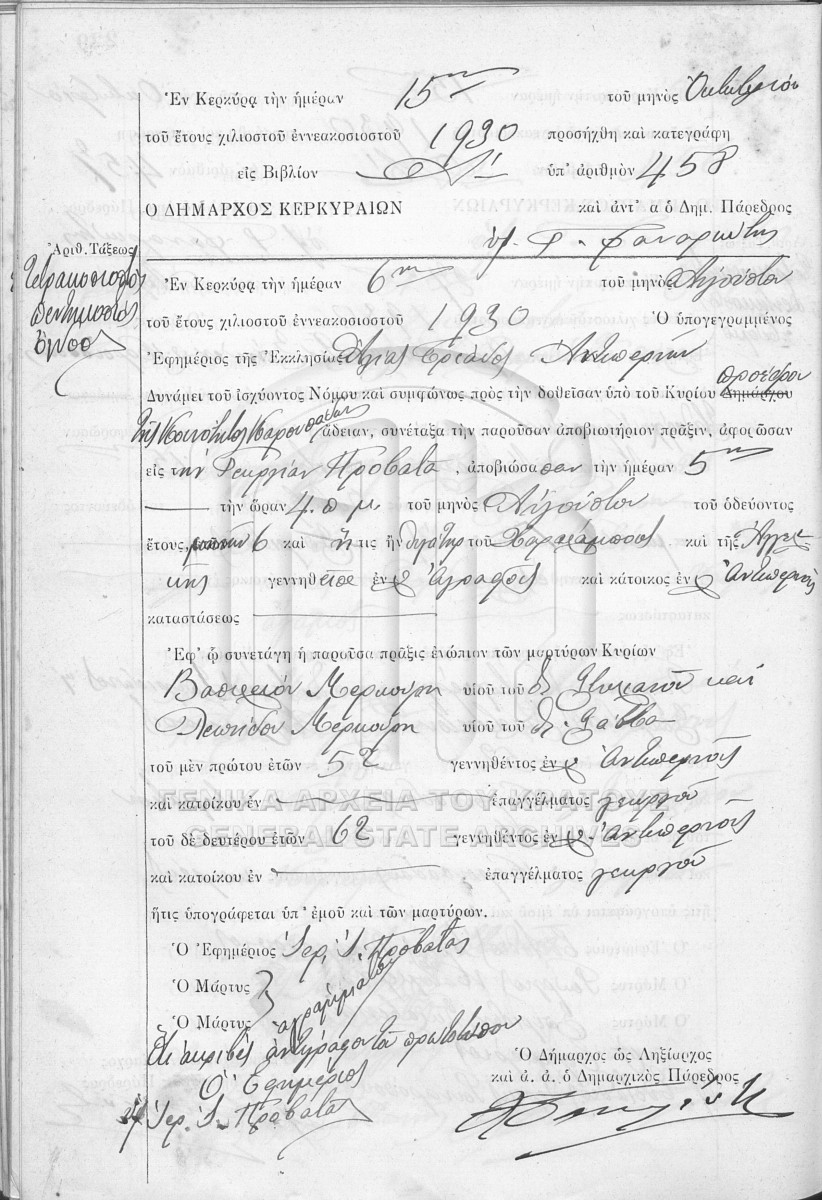 Ἐν Κερκύρᾳ τὴν ἡμέραν 15ην τοῦ μηνὸς Ὀκτωβρίου
τοῦ ἔτους χιλιοστοῦ ἐννεακοσιοστοῦ 1930 προσήχθη καὶ κατεγράφη
εἰς Βιβλίον ὑπ' ἀριθμὸν 458
Ο ΔΗΜΑΡΧΟΣ ΚΕΡΚΥΡΑΙΩΝ καὶ ἀντ' α ὁ Δημ. Πάρεδρος
Ἀριθ. Τάξεως
Τετρακοσιοστὸς
πεντηκοστὸς
ὄγδοος
Ἐν Κερκύρᾳ τὴν ἡμέραν 6ην τοῦ μηνὸς Αὐγούστου
τοῦ ἔτους χιλιοστοῦ ἐννεακοσιοστοῦ 1930 Ὁ ὑπογεγραμμένος
Ἐφημέριος τῆς Ἐκκλησίας Ἁγίας Τριάδος
Δυνάμει τοῦ ἰσχύοντος Νόμου καὶ συμφώνως πρὸς τὴν δοθεῖσαν ὑπὸ τοῦ Κυρίου Δημάρχου προέδρου
τῆς Κοινότητος ἄδειαν, συνέταξα τὴν παροῦσαν ἀποβιωτήριον πρᾶξιν, ἀφορῶσαν
εἰς τὴν Γεωργίαν Προβατᾶ, ἀποβιώσασαν τὴν ἡμέραν 5ην
τὴν ὥραν 4 π.μ. τοῦ μηνὸς Αὐγούστου τοῦ ὁδεύοντος
ἔτους, 6 καὶ ἥτις ἦν θυγάτηρ τοῦ Χαραλάμπους καὶ τῆς Ἀγγελι
κῆς γεννηθεῖσα ἐν καὶ κάτοικος ἐν
καταστάσεως
Ἐφ' ᾧ συνετάγη ἡ παροῦσα πρᾶξις ἐνώπιον τῶν μαρτύρων Κυρίων
Μερκούρη υἱοῦ τοῦ καὶ
Μερκούρη υἱοῦ τοῦ Σάββα
τοῦ μὲν πρώτου ἐτῶν 52 γεννηθέντος ἐν
καὶ κατοίκου ἐν ἐπαγγέλματος γεωργοῦ
ΓΕΝΙΚΑ ΑΡΧΕΙΑ ΤΟΥ ΚΡΑΤΟΥΣ
τοῦ δὲ δευτέρου ἐτῶν 62 γεννηθέντος ἐν
GENERAL STATE ARCHIVES
καὶ κατοίκου ἐν ἐπαγγέλματος γεωργοῦ
ἥτις ὑπογράφεται ὑπ' ἐμοῦ καὶ τῶν μαρτύρων.
Ὁ Ἐφημέριος Ἱερ. Ἰ. Προβατᾶς
Ὁ Μάρτυς
Ὁ Μάρτυς ἀγράμματοι
Ὅτι ἀκριβὲς ἀντίγραφον τοῦ πρωτοτύπου
Ὁ Ἐφημέριος
Ἱερ. Ἰ. Προβατᾶς
Ὁ Δήμαρχος ὡς Ληξίαρχος
καὶ ἀ. ἀ. ὁ Δημαρχικὸς Πάρεδρος